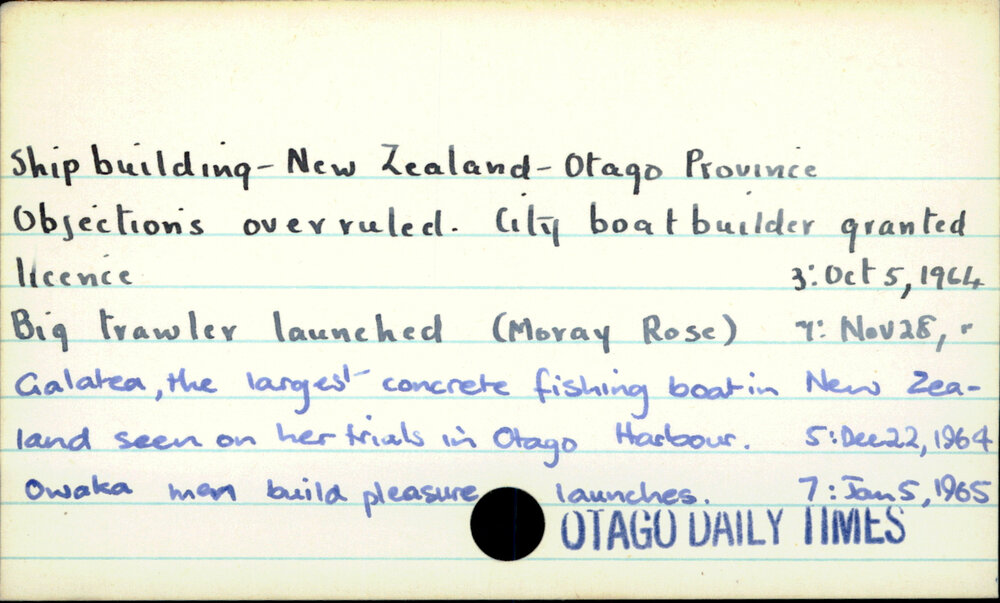 Shipbuilding - New Zealand - Otago Province
Objections overruled. City boatbuilder granted
licence 3: Oct 5, 1964
Big trawler launched (Moray Rose) 7: Nov 28, "
Galatea, the largest concrete fishing boat in New Zea-
land seen on her trials in Otago Harbour. 5: Dec 22, 1964
Owaka men build pleasure launches. 7: Jan 5, 1965
OTAGO DAILY TIMES